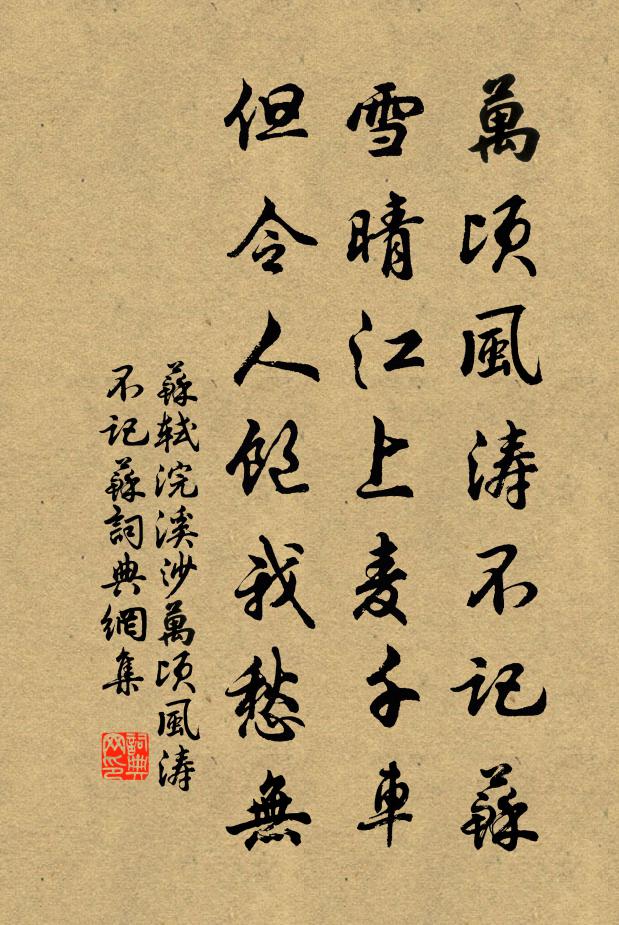 萬頃風濤不記蘇
雪晴江上麦千車
但令人飽我愁無
蘇軾浣溪沙萬頃風濤
不记蘇詞典網集
詞典网印